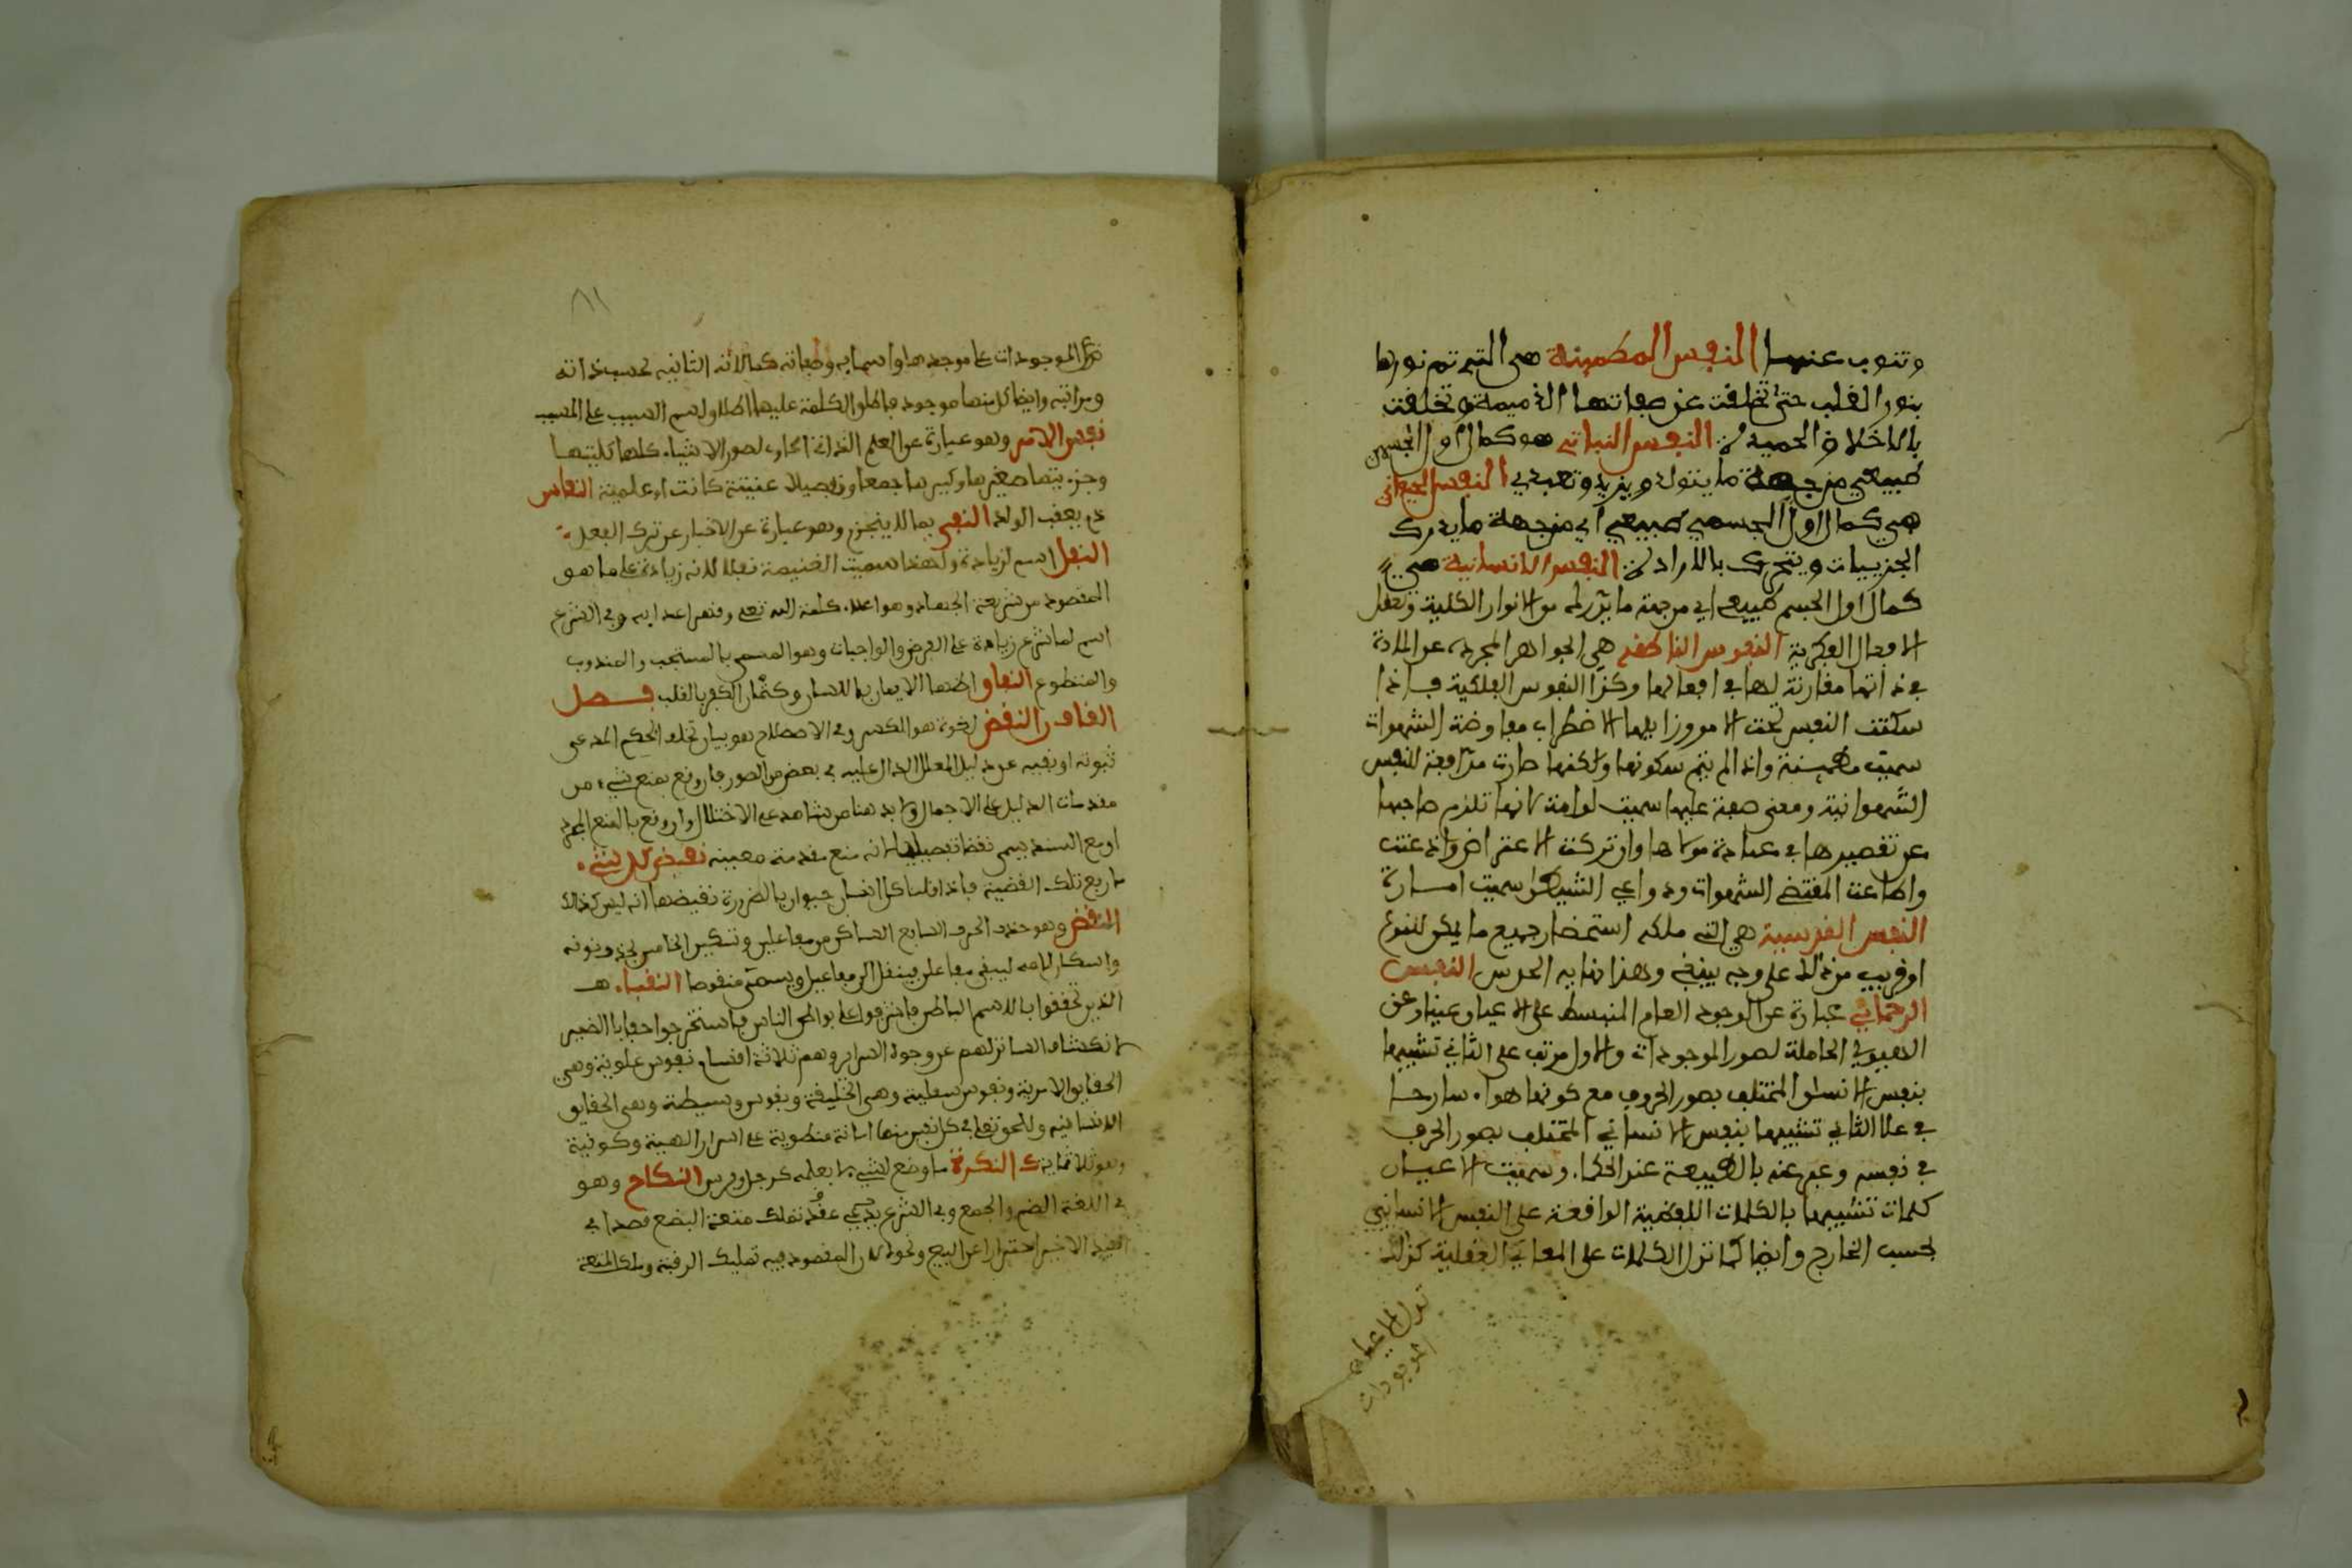 وتنوب عنها النفس المطمئنة هي التي تم نورها
بنور القلب حتى تخلفت عن صفاتها الذميمة وتخلقت
بالاخلاق الحميدة النفس النباتي هو كمال اول لجسم
طبيعي من جهة ما يتولد ويزيد وتغدي النفس الحيواني
هي كمال اول لجسم طبيعي الي من جهة ما يدرك
الجزييات ويتحرك بالاراد النفس الانسانية هي
كمال اول لجسم طبيعي الي من جهة ما يدرك من الانوار الكلية وتفعل
الافعال الفكرية النفوس الناطقة هي الجواهر المجردة عن المادة
في ذاتها مقارنة لها في افعالها وكذا النفوس الفلكية فاذا
سكنت النفس تحت الامر وزايلها الاضطراب معارضة الشهوات
سميت مطمينة واذا لم يتم سكونها ولكنها صارت مدافعة للنفس
الشهوانية ومعترضة عليها سميت لوامة لانها تلوم صاحبها
عن تقصيرها في عبادة مولاها وان تركت الاعتراض واذعنت
واطاعت لمقتضى الشهوات ودواعي الشيطان سميت امارة
النفس القدسية هي التي ملكه استحضار جميع ما يمكن للنوع
او قريب من ذلك على وجه يقيني وهذا نهايه الحدس النفس
الرحماني عبارة عن الوجود العام المنبسط على الاعيان عينا وعن
الهيولي الحاملة لصور الموجودات والاول مرتب على الثاني تشبيها
بنفس الانسان المختلف بصور الحروف مع كونها هواء ساذجا
في على الثاني تشبيها بنفس الانساني المختلف بصور الحرف
في نفسه وعبر عنه بالطبيعة عند الحكما وسميت الاعيان
كلمات تشبيها بالكلمات اللفظية الواقعة على النفس الانساني
بحسب المخارج وايضا كما تدل الكلمات على المعاني العقلية كذلك
تدل الاعيان
الموجودات
٨١
الموجودات على موجدها واسمايه وصفاته كمالاته الثانية بحسب ذاته
ومراتبه وايضا كل منها موجود باطلو الكلمة عليها اطلاق اسم السبب على المسبب
نفس الامر وهو عبارة عن العلم الذاتي الحاوي لصور الاشياء كلها كليتها
وجزءيتها صغيرها وكبيرها جمعا وتفصيلا عينية كانت او علمية النفاس
دم يعقب الولد النفي بما لا ينجزم وهو عبارة عن الاخبار عن ترك الفعل
النفل اسم لزيادة ولهذا سميت الغنيمة نفلا لانه زيادة على ما هو
المقصود من شريعة الجهاد وهو اعلاء كلمة الله تعلى وقهر اعدايه وفي الشرع
اسم لما شرع زيادة على الفرض والواجبات وهو المسمى بالمستحب والمندوب
والمتطوع النفاق اظهار الايمان باللسان وكتمان الكفر بالقلب فصل
القاف النقض لغة هو الكسر وفي الاصطلاح هو بيان تخلف الحكم المدعى
ثبوته او نفيه عن دليل المعلل الدال عليه في بعض من الصور فان وقع بمنع شيء من
مقدمات الدليل على الاجمال ولابد هنا من شاهد على الاختلال وان وقع بالمنع المجرد
او مع السند يسمى نقضا تفصيليا لانه منع مقدمة معينه نقيض كل شيء
رفع تلك القضية فاذا قلنا كل انسان حيوان بالضرورة نقيضها انه ليس كذلك
النقض وهو حذف الحرف السابع الساكن من مفاعلتن وتسكين الخامس بحذف نونه
واسكان لامه ليبقى مفاعلت فينقل الى مفاعيل ويسمى منقوصا النقباء هم
الذين تحققوا بالاسم الباطن فاشرفوا على بواطن الناس فاستخرجوا خفايا الضمير
لانكشاف الساتر لهم عن وجوه السراير وهم ثلاثة اقسام نفوس علوية وهي
الحقايق الامرية ونفوس سفلية وهي الخليقة ونفوس وسيطة وهي الحقايق
الانسانيه وللحق تعلى في كل نفس منها امانة منطوية على اسرار الهية وكونية
وهو ثلاثماية النكرة ما وضع لشيء لا بعلمه كرجل وفرس النكاح وهو
في اللغة الضم والجمع وفي الشرع عقد تملك منفعة البضع قصدا في
القيد الاخير احترازا عن البيع ونحوه لان المقصود فيه تمليك الرقبة وملك المنفعة